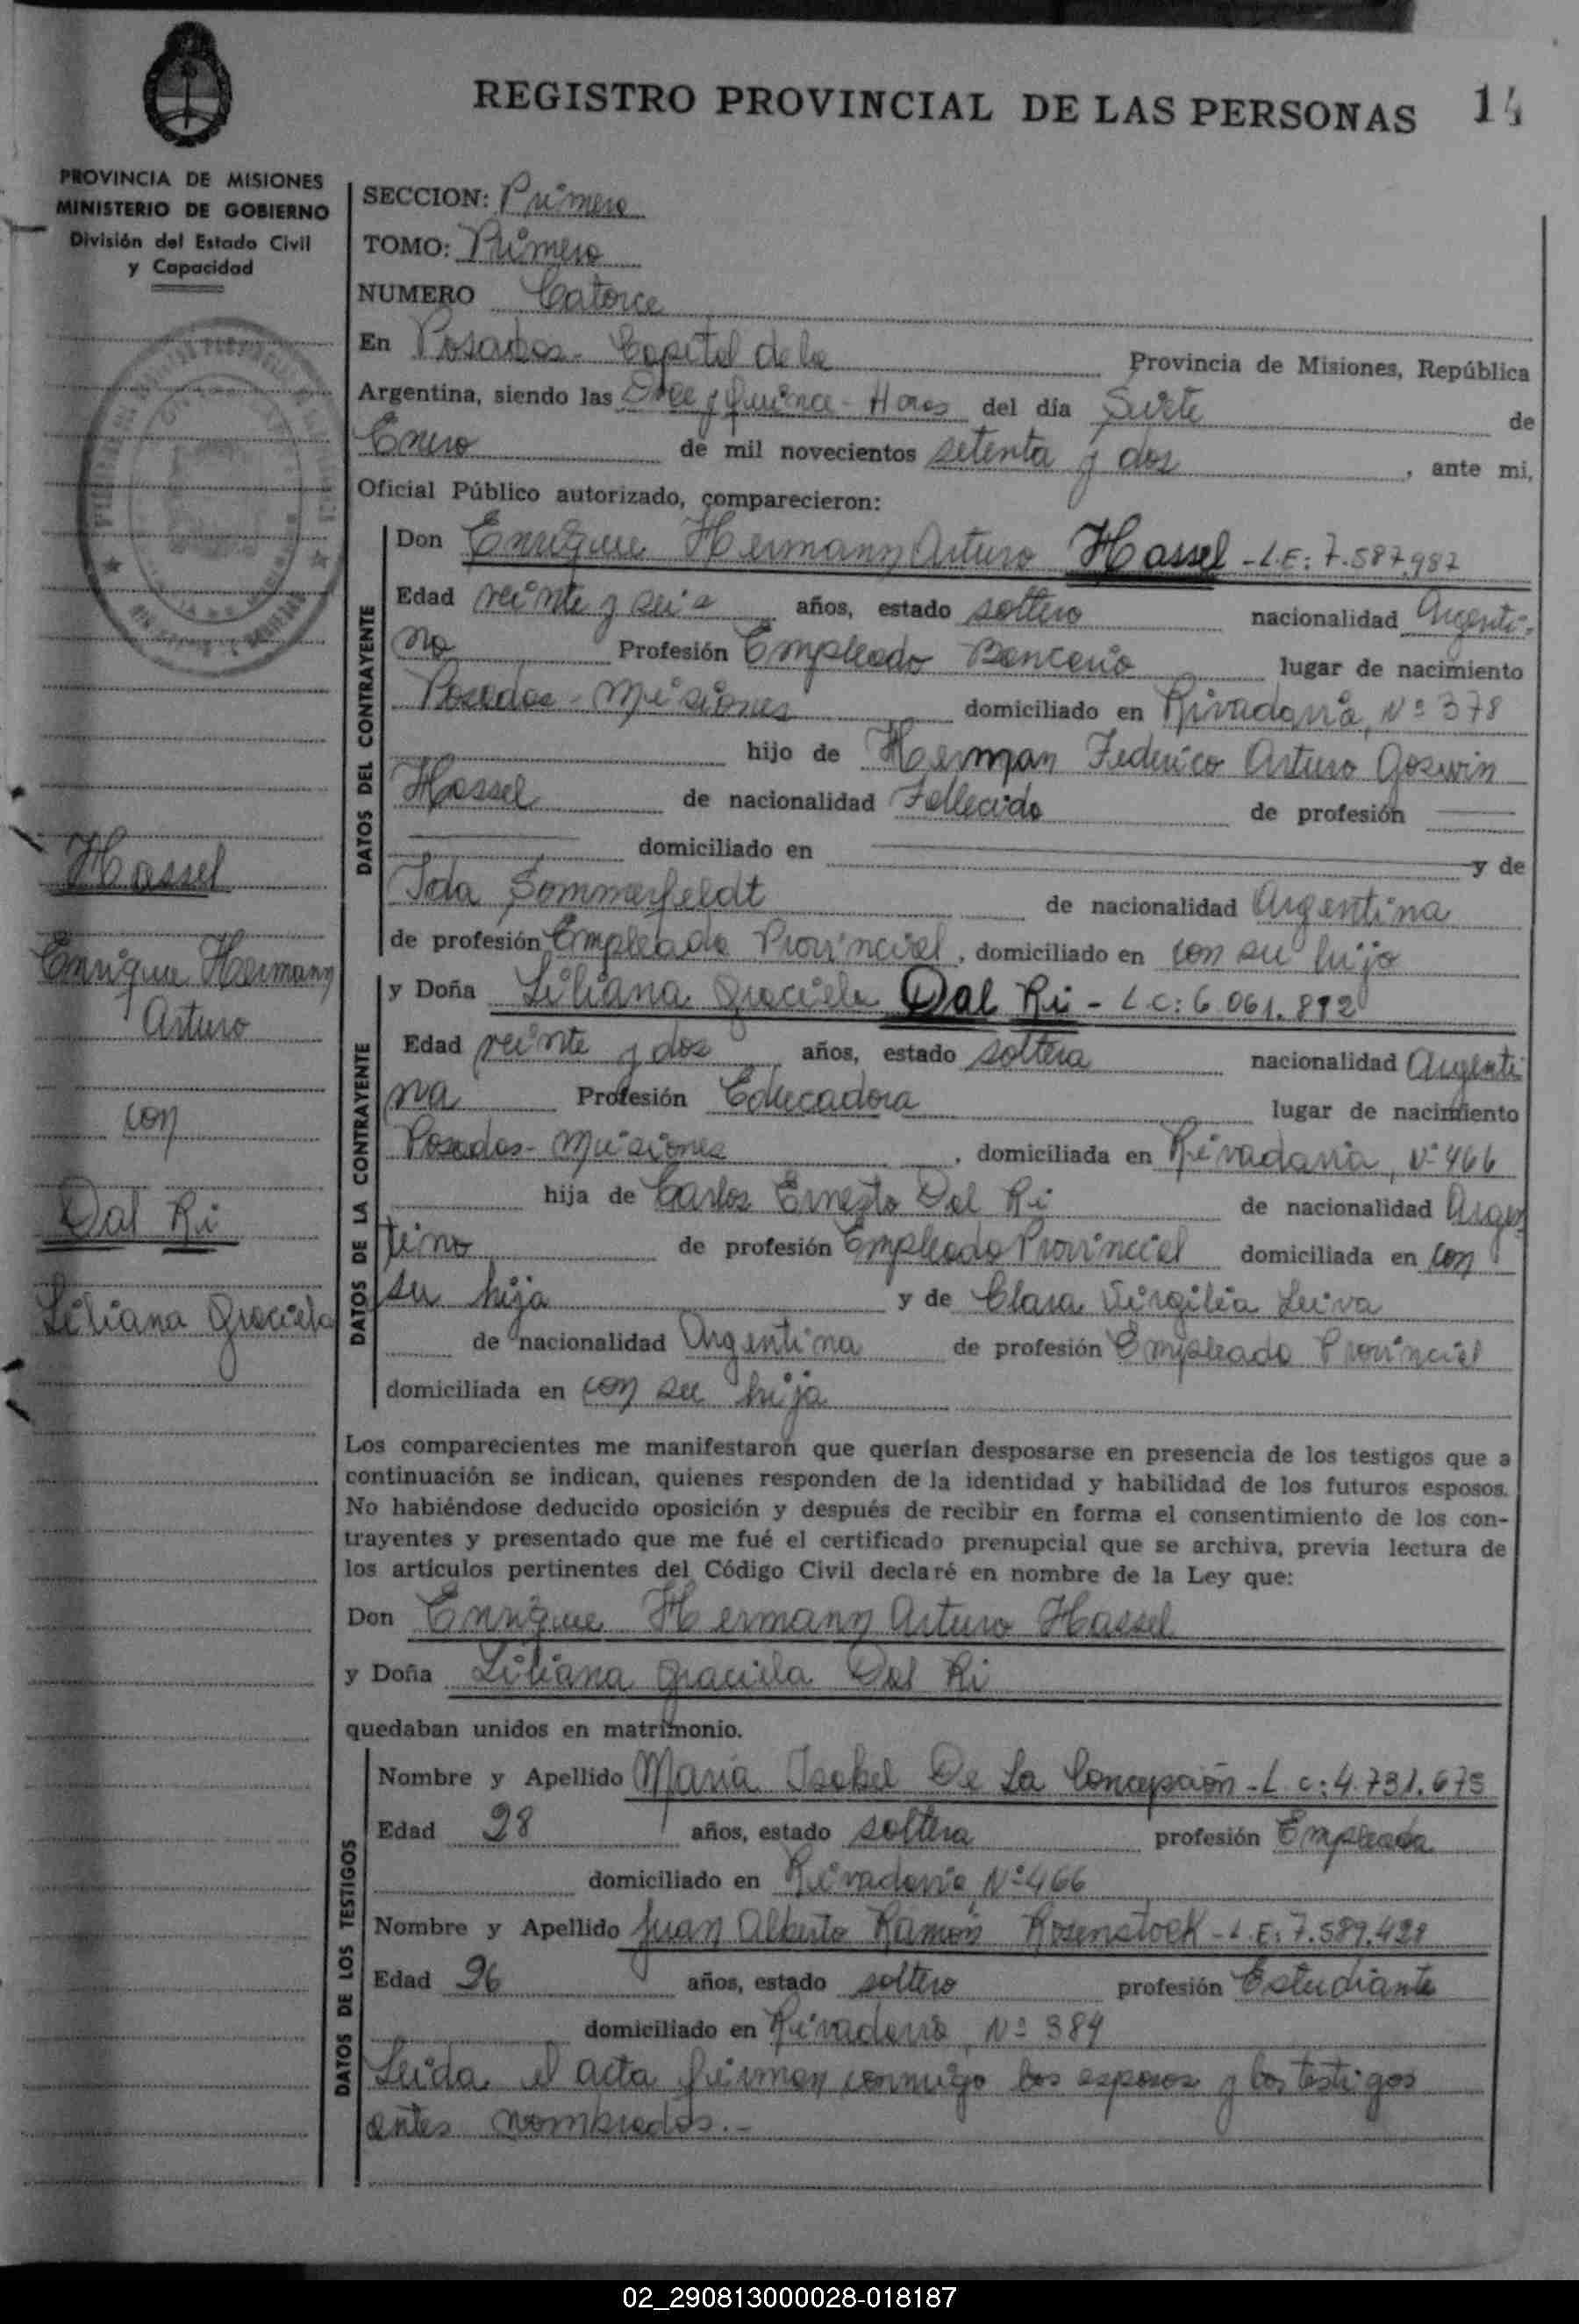 REGISTRO PROVINCIAL DE LAS PERSONAS 14
PROVINCIA DE MISIONES
MINISTERIO DE GOBIERNO
División del Estado Civil
y Capacidad
SECCION: Primera
TOMO: Primero
NUMERO Catorce
En Posadas - Capital de la Provincia de Misiones, República
Argentina, siendo las y quince - Horas del día Siete de
Enero de mil novecientos setenta y dos, ante mi,
Oficial Público autorizado, comparecieron:
DATOS DEL CONTRAYENTE
Don Enrique Hermann Arturo Hassel - L.E: 7.587.987
Edad veinte y seis años, estado soltero nacionalidad Argenti-
no Profesión Empleado Bancario lugar de nacimiento
Posadas - Misiones domiciliado en Rivadavia, Nº 378
hijo de Herman Federico Arturo Goswin
Hassel de nacionalidad Fallecido de profesión
domiciliado en y de
Ida Sommerfeldt de nacionalidad Argentina
de profesión Empleada Provincial, domiciliado en con su hijo
DATOS DE LA CONTRAYENTE
y Doña Liliana Graciela Dal Ri - L.C: 6.061.812
Edad veinte y dos años, estado soltera nacionalidad Argenti
na Profesión Educadora lugar de nacimiento
Posadas - Misiones, domiciliada en Rivadavia, Nº 466
hija de Carlos Ernesto Dal Ri de nacionalidad Argen
tino de profesión Empleado Provincial domiciliada en con
su hija y de Clara Virgilia Leiva
de nacionalidad Argentina de profesión Empleada Provincial
domiciliada en con su hija
Hassel
Enrique Hermann
Arturo
con
Dal Ri
Liliana Graciela
Los comparecientes me manifestaron que querían desposarse en presencia de los testigos que a
continuación se indican, quienes responden de la identidad y habilidad de los futuros esposos.
No habiéndose deducido oposición y después de recibir en forma el consentimiento de los con-
trayentes y presentado que me fué el certificado prenupcial que se archiva, previa lectura de
los artículos pertinentes del Código Civil declaré en nombre de la Ley que:
Don Enrique Hermann Arturo Hassel
y Doña Liliana Graciela Dal Ri
quedaban unidos en matrimonio.
DATOS DE LOS TESTIGOS
Nombre y Apellido María Isabel De La Concepción - L.C: 4.731.675
Edad 28 años, estado soltera profesión Empleada
domiciliado en Rivadavia, Nº 466
Nombre y Apellido Juan Alberto Ramón Rosenstock - L.E: 7.589.421
Edad 26 años, estado soltero profesión Estudiante
domiciliado en Rivadavia, Nº 384
Leida el acta firman conmigo los esposos y los testigos
antes nombrados.-
02_290813000028-018187